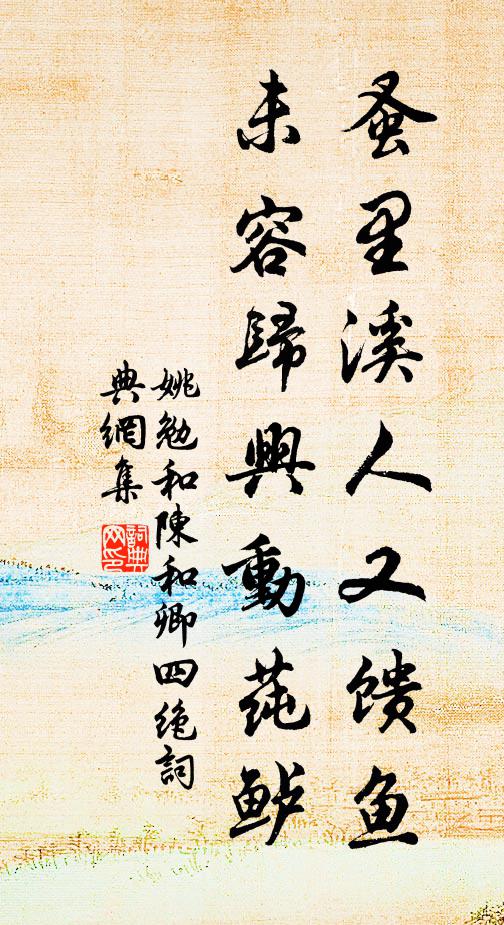 蚤里溪人又馈鱼
未容歸興動莼鲈
姚勉和陳和卿四绝詞
典網集
詞典
网印